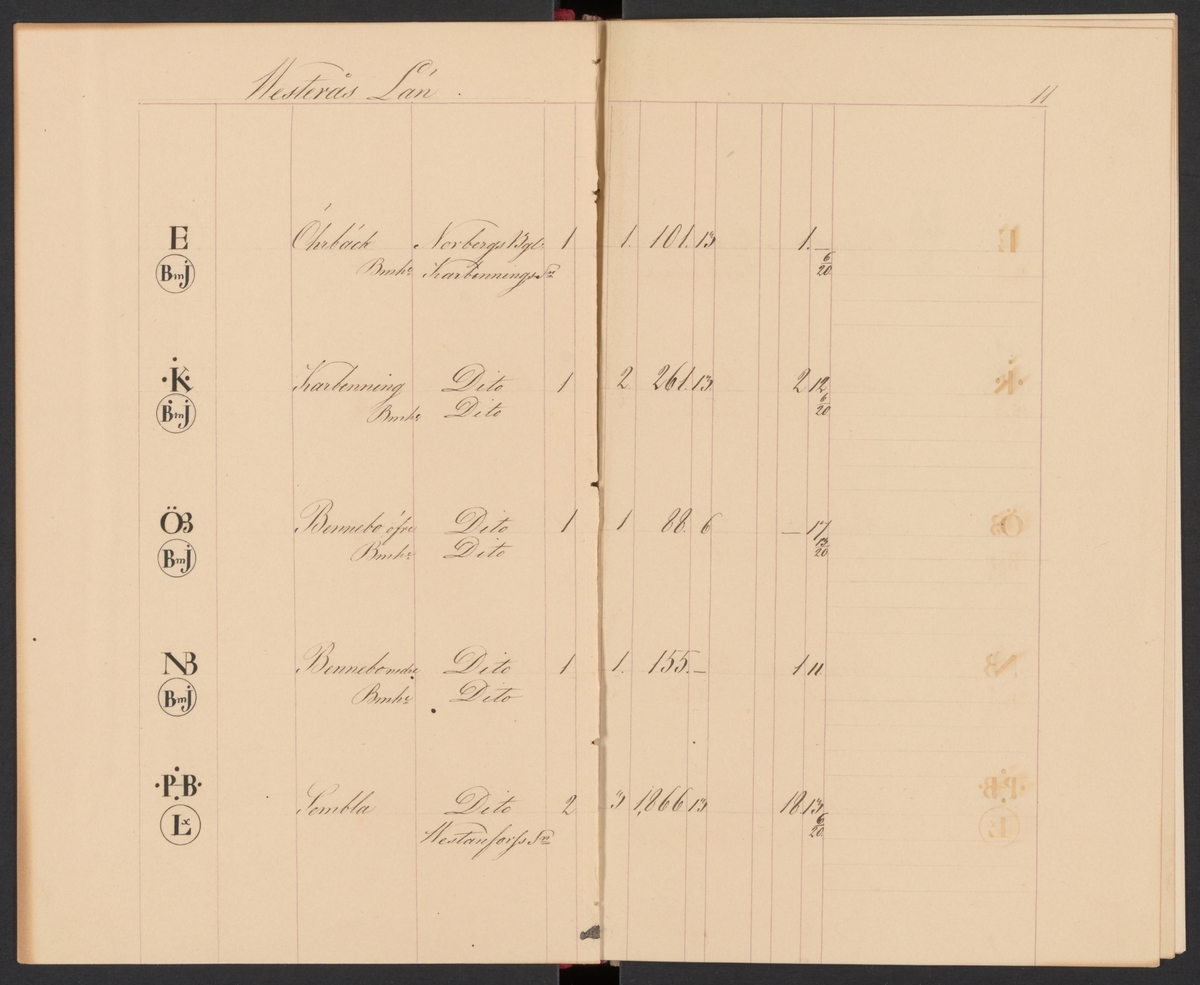 Westerås Län.
11
E Öhrbäck Norbergs Bgl. 1 1. 101. 13 1. —
BmJ Bmhr Karbennings Sn 6/20
·K· Karbenning Dito 1 2 261. 13 2 12
BmJ Bmhr Dito 6/20
ÖB Bennebo öfre Dito 1 1 88. 6 — 17
BmJ Bmhr Dito 13/20
NB Bennebo nedre Dito 1 1. 155. — 1 11
BmJ Bmhr Dito
·P·B· Sembla Dito 2 3 1,866 13 18. 13
Lx Westanfors Sn 6/20